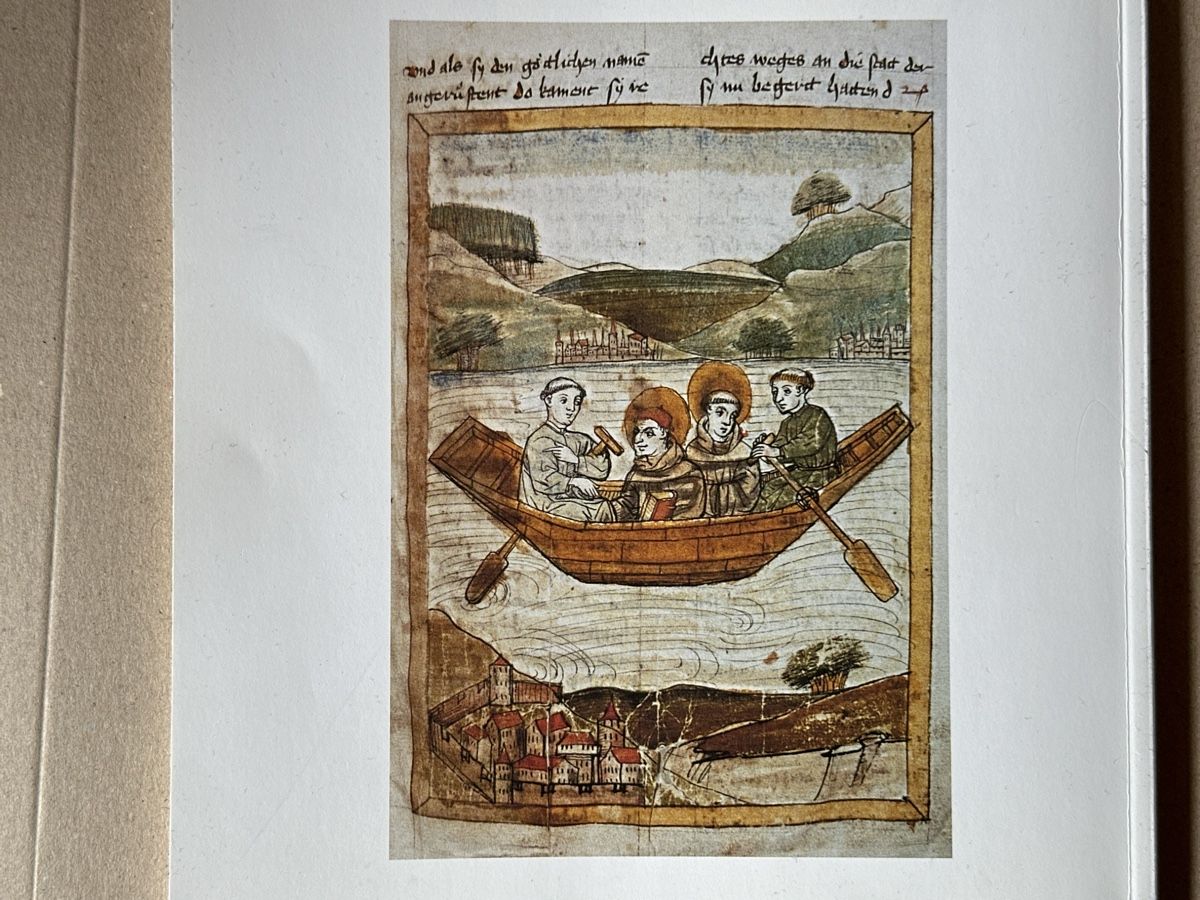 vnd als sy den götlichen namē
angerůftent do kament sy re
chtes weges an die stat der
sy nu begert hattend